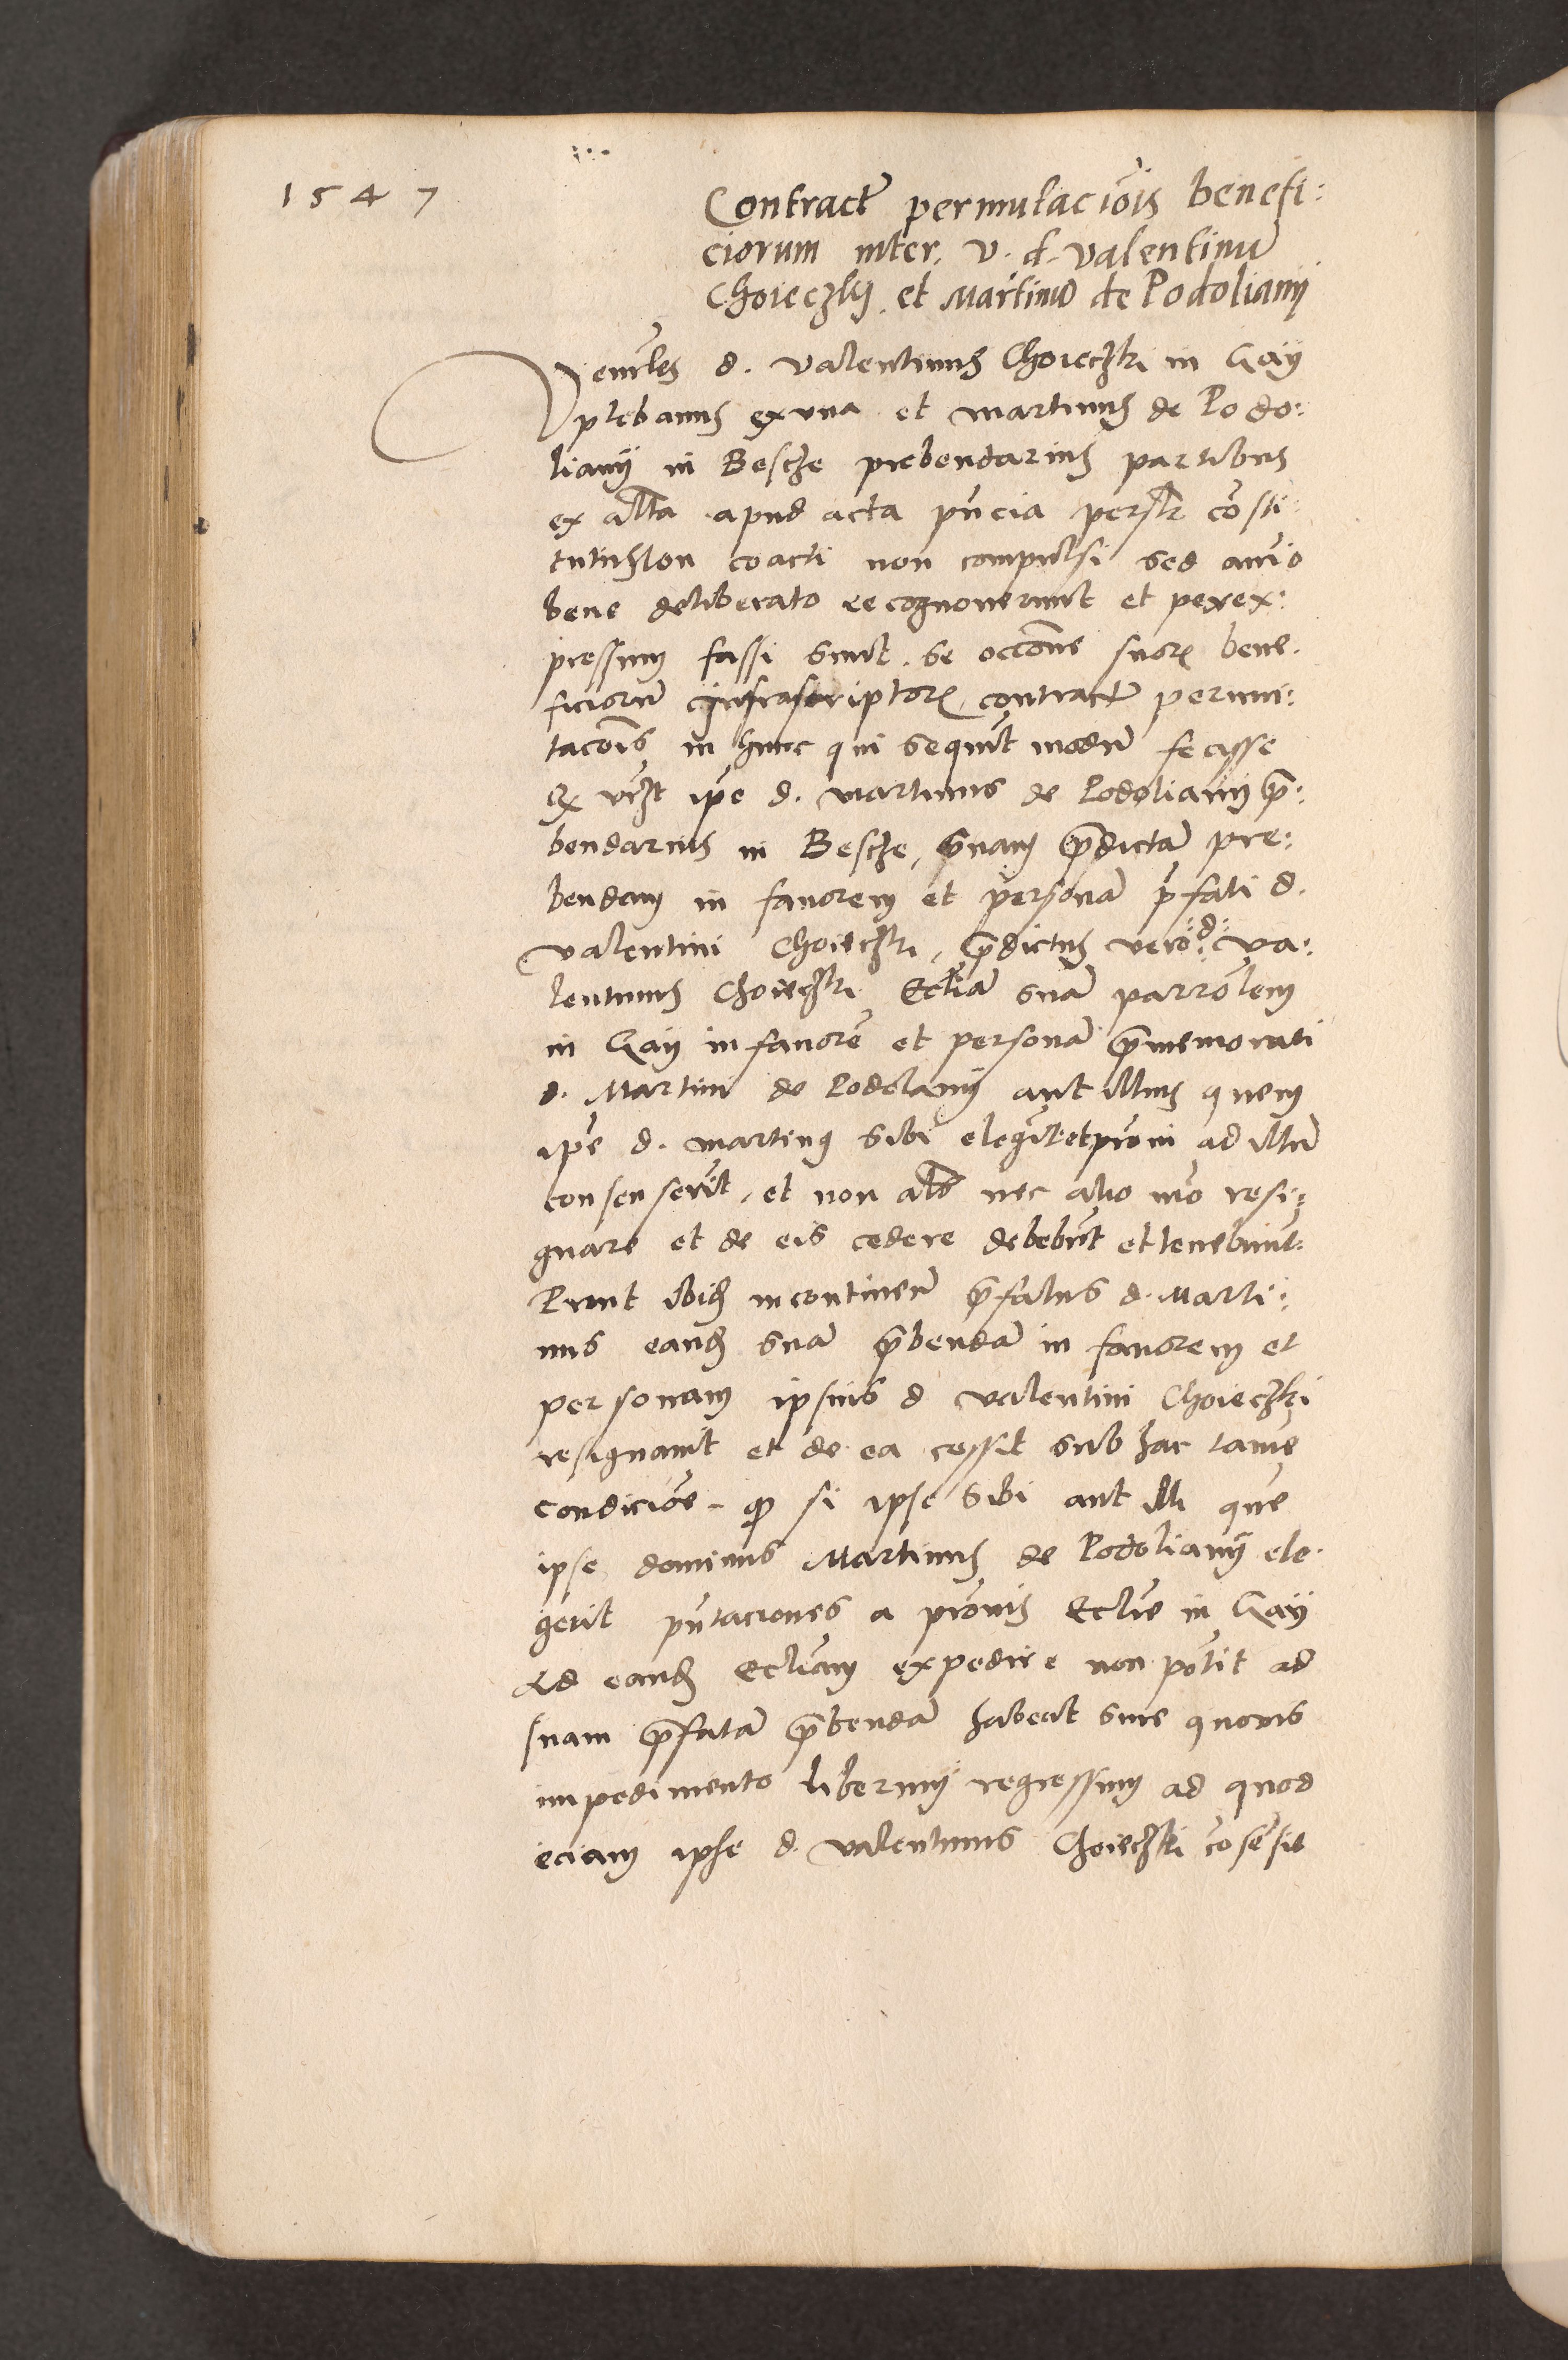 1547
Contractꝰ permutaciōis benefi:
ciorum inter. v. d. valentinū
Choieczky. et Martinū de Podoliany
Venerl̃es d. valentinus Choieczki in Gay
plebanus ex vna et martinus de Podo:
liany in Besche prebendarius partibus
ex alt̃a apud acta pñcia persl̃r cōsti:
tuti Non coacti non compulsi sed aīo
bene deliberato recognouerunt et per ex:
pressum fassi sunt. se occōne suorꝝ bene.
ficiorū infrascriptorꝝ contractū permu:
tacōis in hunc qui sequit̃ modū fecisse
Ex vĩzt ip̃e d. martinus de Podoliany p̃:
bendarius in Besche, suam p̃dictā pre:
bendam in fauorem et personā p̃fati d.
valentini Choieczki, p̃dictus vero d. va:
lentinus Choieczki Ecl̃iā suā parrōlem
in Gay in fauorē et personā p̃memorati
d. Martini de Podolany aut illius quem
ip̃e d. martinꝰ sibi elegĩt et pr̃oni ad illū
consenserĩt, et non al̃s nec alio mō resi:
gnare et de eis cedere debebũt et tenebunt̃
Prout ibidē incontinen̄ p̃fatus d. Marti:
nus eandē suā p̃bendā in fauorem et
personam ipsius d valentini Choieczki
resignauit et de ea cessit sub hac tamē
condiciōe. ꝙ si ipse sibi aut illi quē
ipse dominus Martinus de Podoliany ele.
gerit pñtaciones a pr̃onis Ecl̃ie in Gay
Ad eandē Ecl̃iam expedire non pot̃it ad
suam p̃fatā p̃bendā habeat sine quouis
impedimento liberum regressum ad quod
eciam ipse d. valentinus Choieczki cōsēsit